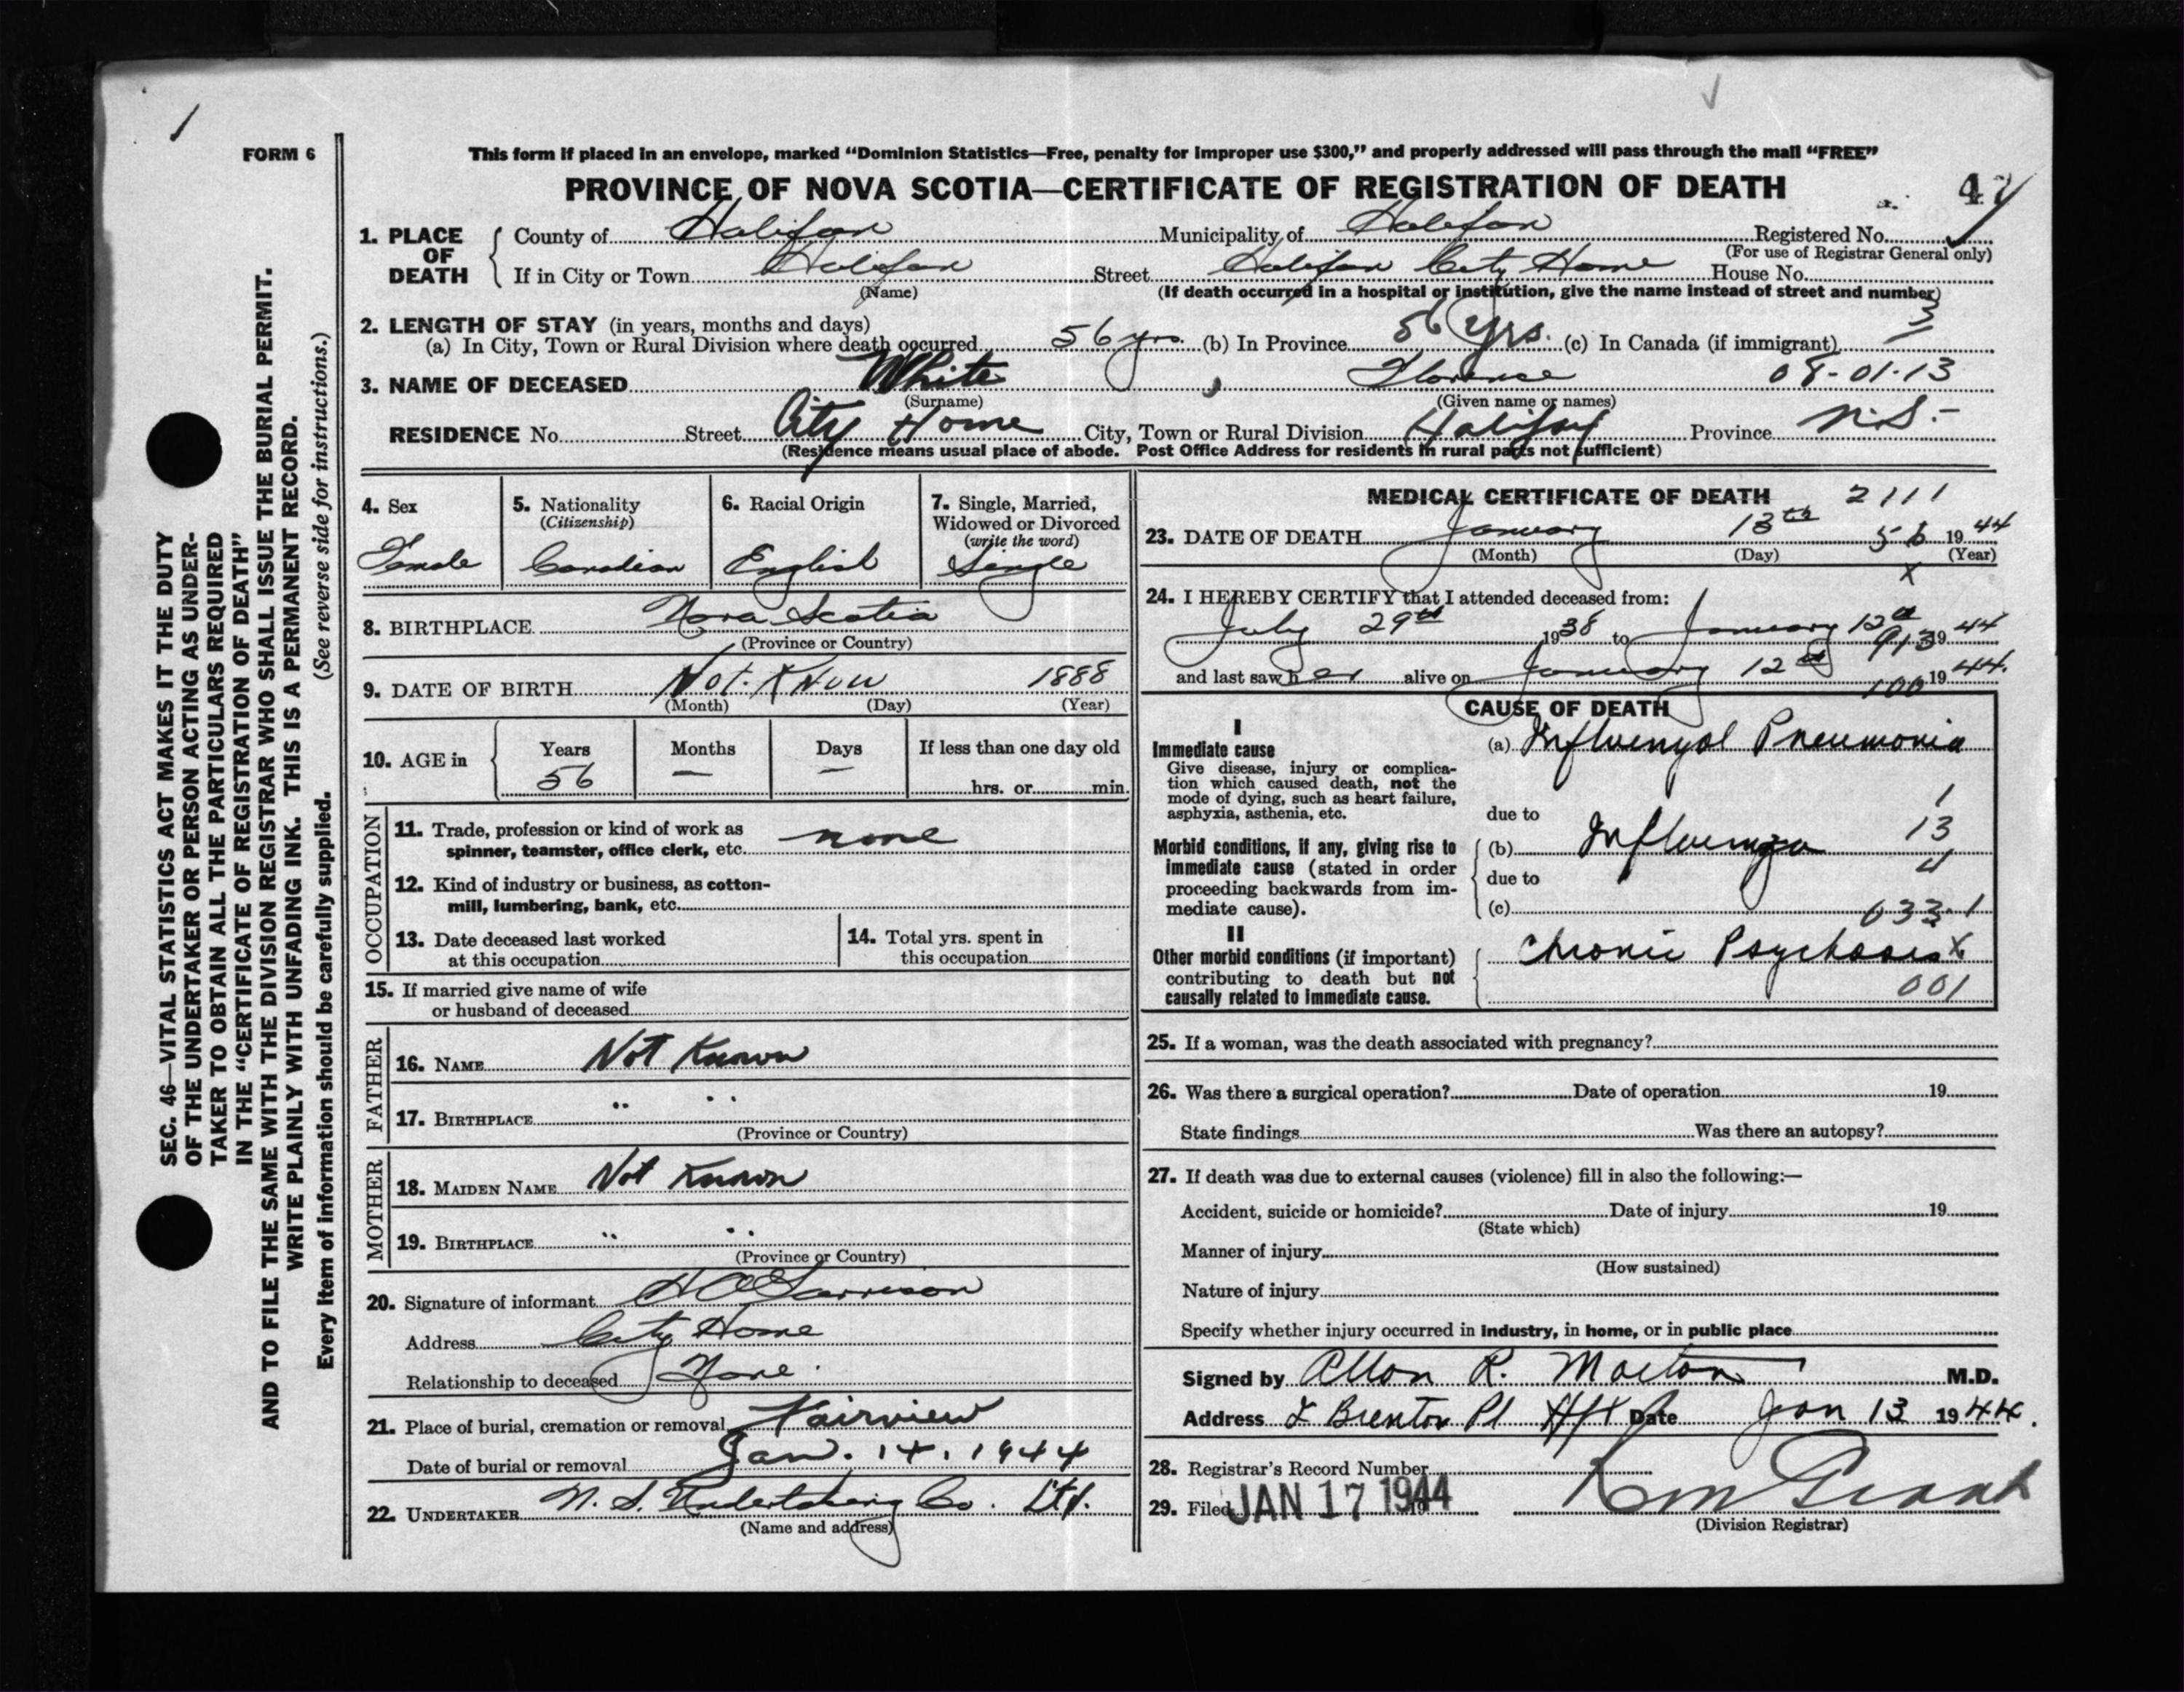 This form if placed in an envelope, marked “Dominion Statistics—Free, penalty for improper use $300,” and properly addressed will pass through the mail “FREE”
FORM 6
PROVINCE OF NOVA SCOTIA—CERTIFICATE OF REGISTRATION OF DEATH
1. PLACE OF DEATH
County of Halifax Municipality of Halifax Registered No.
(For use of Registrar General only)
If in City or Town Halifax Street Halifax City Home House No.
(Name) (If death occurred in a hospital or institution, give the name instead of street and number)
2. LENGTH OF STAY (in years, months and days) 3
(a) In City, Town or Rural Division where death occurred 56 yrs. (b) In Province 56 yrs. (c) In Canada (if immigrant)
3. NAME OF DECEASED White , Florence 08-01-13
(Surname) (Given name or names)
RESIDENCE No. Street City Home City, Town or Rural Division Halifax Province N.S.-
(Residence means usual place of abode. Post Office Address for residents in rural parts not sufficient)
4. Sex
Female
5. Nationality
(Citizenship)
Canadian
6. Racial Origin
English
7. Single, Married,
Widowed or Divorced
(write the word)
Single
8. BIRTHPLACE Nova Scotia
(Province or Country)
9. DATE OF BIRTH Not Know 1888
(Month) (Day) (Year)
10. AGE in
Years Months Days If less than one day old
56 — — hrs. or min.
OCCUPATION
11. Trade, profession or kind of work as
spinner, teamster, office clerk, etc. none
12. Kind of industry or business, as cotton-
mill, lumbering, bank, etc.
13. Date deceased last worked
at this occupation
14. Total yrs. spent in
this occupation
15. If married give name of wife
or husband of deceased
FATHER
16. NAME Not Known
17. BIRTHPLACE " "
(Province or Country)
MOTHER
18. MAIDEN NAME Not Known
19. BIRTHPLACE " "
(Province or Country)
20. Signature of informant
Address City Home
Relationship to deceased None.
21. Place of burial, cremation or removal Fairview
Date of burial or removal Jan. 14, 1944
22. UNDERTAKER N. S. Undertaking Co. Ltd.
(Name and address)
MEDICAL CERTIFICATE OF DEATH 2111
23. DATE OF DEATH January 13th 56 1944
(Month) (Day) (Year)
x
24. I HEREBY CERTIFY that I attended deceased from:
July 29th 1938 to January 12th 1944
913
and last saw her alive on January 12th 1944.
100
CAUSE OF DEATH
I
Immediate cause
Give disease, injury or complica-
tion which caused death, not the
mode of dying, such as heart failure,
asphyxia, asthenia, etc.
(a) Influenzal Pneumonia
1
due to
13
Morbid conditions, if any, giving rise to
immediate cause (stated in order
proceeding backwards from im-
mediate cause).
(b) Influenza
4
due to
(c) 033.1
II
Other morbid conditions (if important)
contributing to death but not
causally related to immediate cause.
Chronic Psychosis x
001
25. If a woman, was the death associated with pregnancy?
26. Was there a surgical operation? Date of operation 19
State findings Was there an autopsy?
27. If death was due to external causes (violence) fill in also the following:—
Accident, suicide or homicide? Date of injury 19
(State which)
Manner of injury
(How sustained)
Nature of injury
Specify whether injury occurred in industry, in home, or in public place
Signed by Allan R. Morton M.D.
Address Brenton Pl Hfx Date Jan 13 1944.
28. Registrar’s Record Number
29. Filed JAN 17 1944 19
(Division Registrar)
SEC. 46—VITAL STATISTICS ACT MAKES IT THE DUTY
OF THE UNDERTAKER OR PERSON ACTING AS UNDER-
TAKER TO OBTAIN ALL THE PARTICULARS REQUIRED
IN THE “CERTIFICATE OF REGISTRATION OF DEATH”
AND TO FILE THE SAME WITH THE DIVISION REGISTRAR WHO SHALL ISSUE THE BURIAL PERMIT.
WRITE PLAINLY WITH UNFADING INK. THIS IS A PERMANENT RECORD.
Every item of information should be carefully supplied. (See reverse side for instructions.)